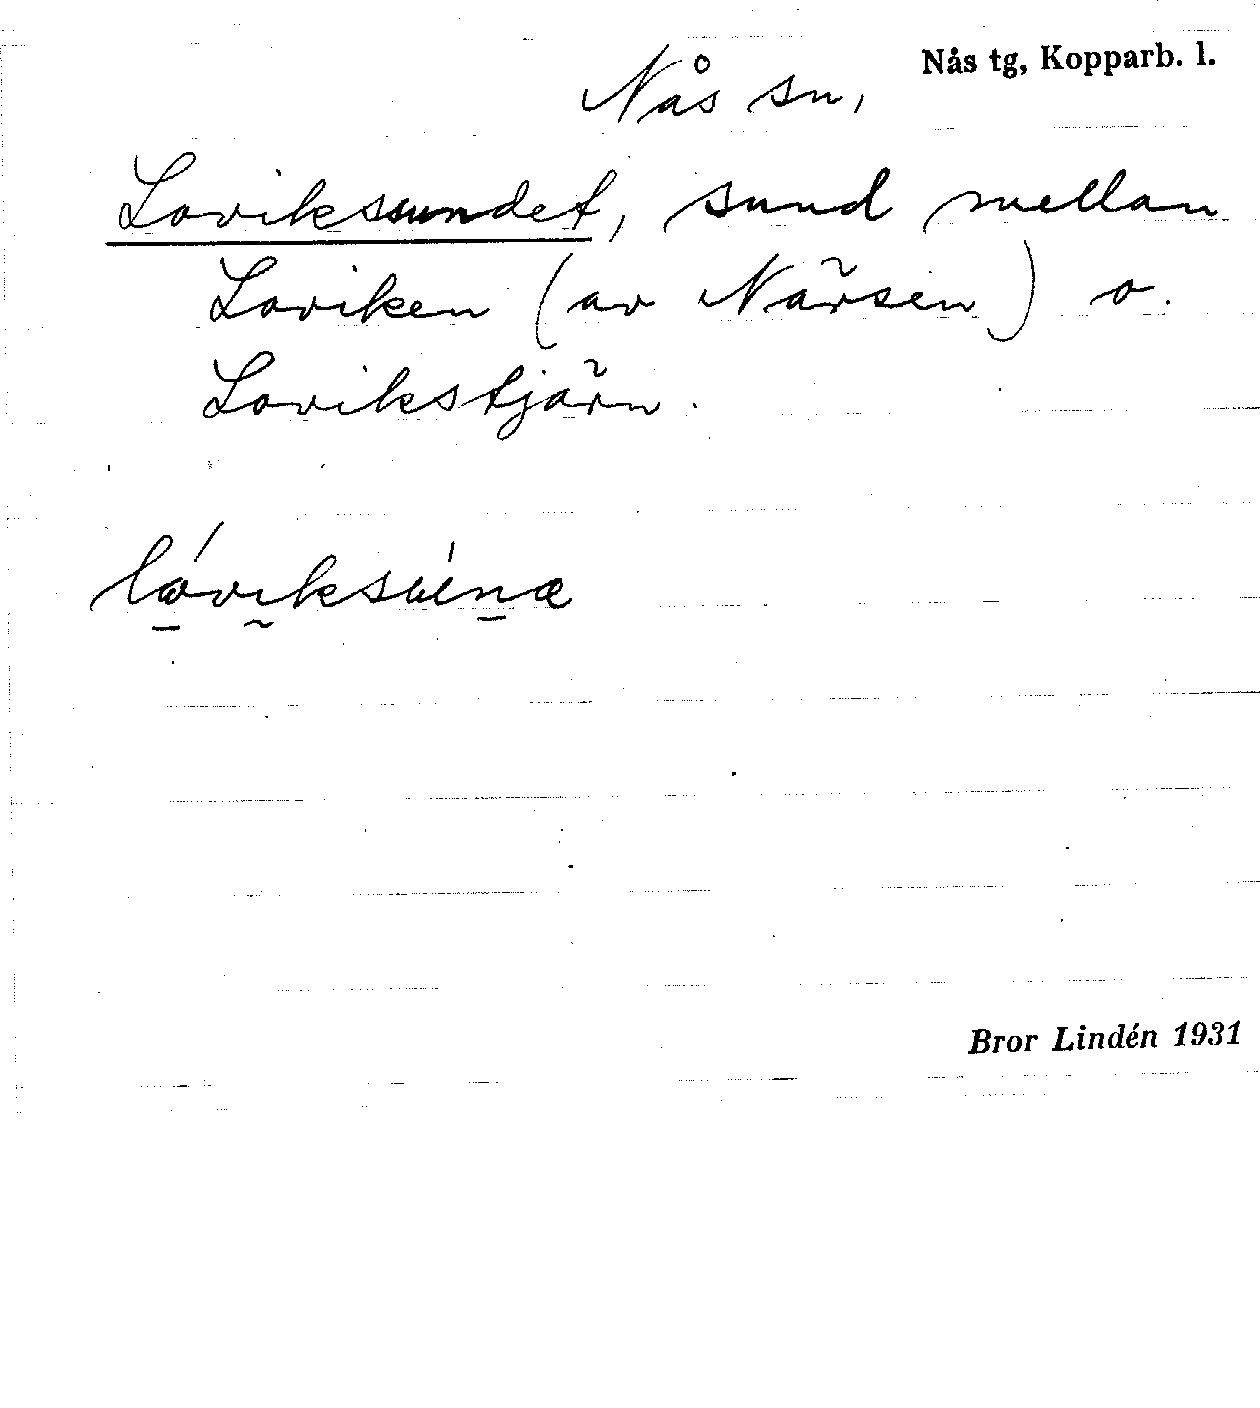 Nås tg, Kopparb. l.
Nås sn,
Loviksundet, sund mellan
Loviken (av Närsen) o.
Lovikstjärn.
Bror Lindén 1931